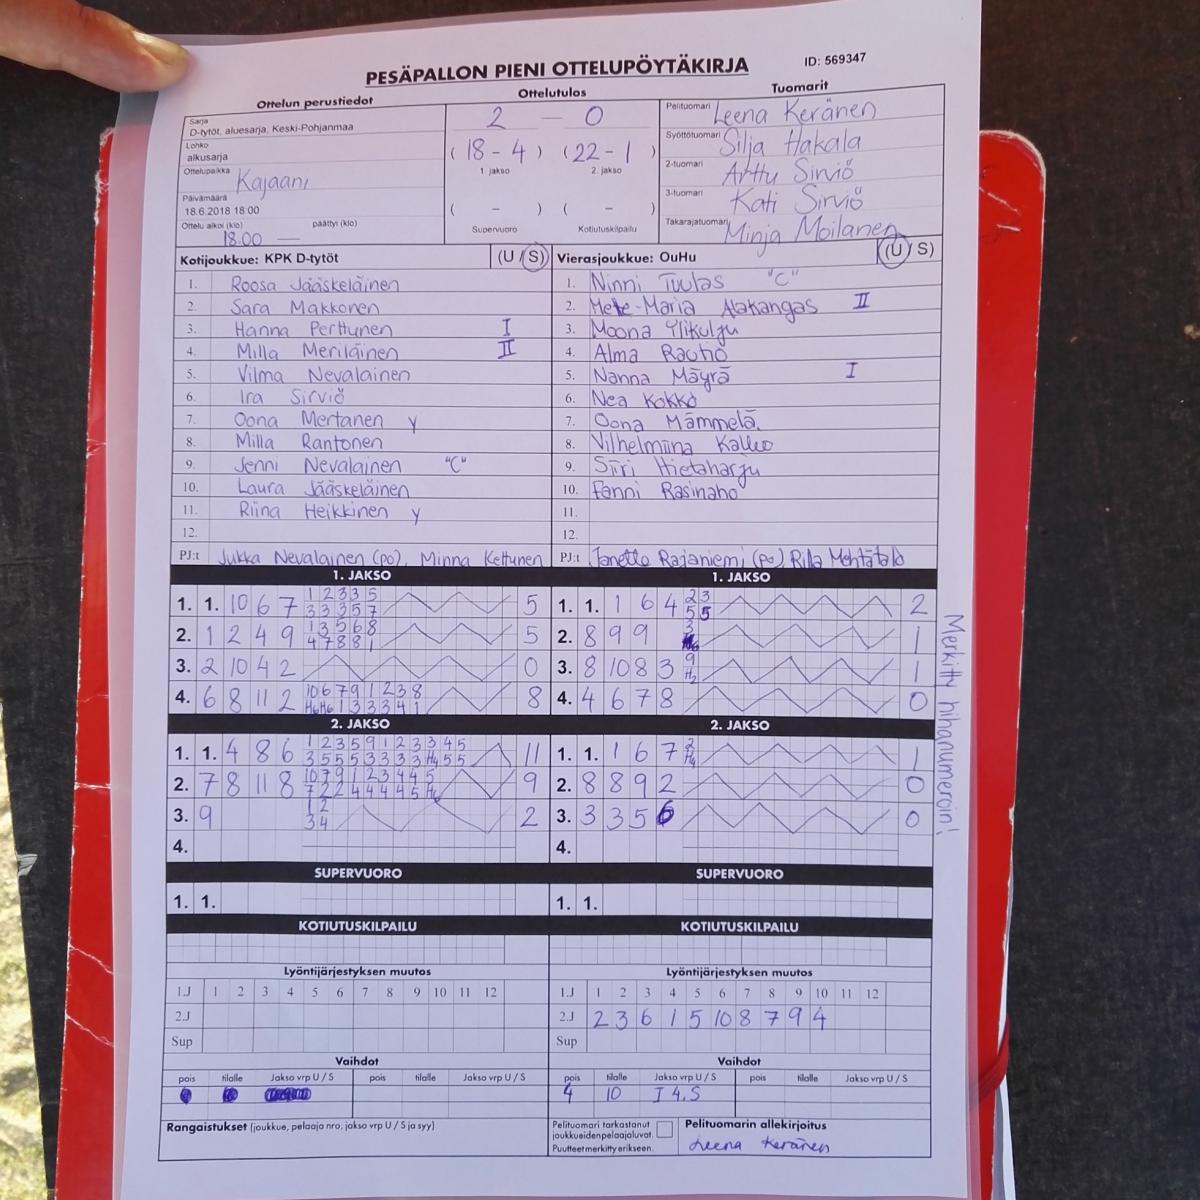 PESÄPALLON PIENI OTTELUPÖYTÄKIRJA
ID: 569347
Ottelun perustiedot
Ottelutulos
Tuomarit
Sarja
D-tytöt, aluesarja, Keski-Pohjanmaa
Lohko
alkusarja
Ottelupaikka Kajaani
Päivämäärä
18.6.2018 18:00
Ottelu alkoi (klo) päättyi (klo)
18.00 —
2 — 0
( 18 - 4 ) ( 22 - 1 )
1. jakso 2. jakso
( - ) ( - )
Supervuoro Kotiutuskilpailu
Pelituomari Leena Keränen
Syöttötuomari Silja Hakala
2-tuomari Arttu Sirviö
3-tuomari Kati Sirviö
Takarajatuomari Minja Moilanen
Kotijoukkue: KPK D-tytöt (U / S)
1. Roosa Jääskeläinen
2. Sara Makkonen
3. Hanna Perttunen I
4. Milla Meriläinen II
5. Vilma Nevalainen
6. Ira Sirviö
7. Oona Mertanen y
8. Milla Rantonen
9. Jenni Nevalainen "C"
10. Laura Jääskeläinen
11. Riina Heikkinen y
12.
PJ:t Jukka Nevalainen (po), Minna Kettunen
Vierasjoukkue: OuHu (U / S)
1. Ninni Tuulas "C"
2. Mete-Maria Alakangas II
3. Moona Ylikulju
4. Alma Rautio
5. Nanna Mäyrä I
6. Nea Kokko
7. Oona Mämmelä
8. Vilhelmiina Kallio
9. Siiri Hietaharju
10. Fanni Rasinaho
11.
12.
PJ:t Rajaniemi (po)
1. JAKSO
1. 1. 10 6 7 1 2 3 3 5 5
3 3 3 5 7
2. 1 2 4 9 1 3 5 6 8 5
4 7 8 8 1
3. 2 10 4 2 0
4. 6 8 11 2 10 6 7 9 1 2 3 8 8
H6 H6 1 3 3 3 4 1
1. JAKSO
1. 1. 1 6 4 2 3 2
5 5
2. 8 9 9 3 1
3. 8 10 8 3 9 1
H2
4. 4 6 7 8 0
2. JAKSO
1. 1. 4 8 6 1 2 3 5 9 1 2 3 3 4 5 11
3 5 5 5 3 3 3 3 H4 5 5
2. 7 8 11 8 10 7 9 1 2 3 4 4 5 9
7 2 2 4 4 4 4 5
3. 9 1 2 2
3 4
4.
2. JAKSO
1. 1. 1 6 7 2 1
H4
2. 8 8 9 2 0
3. 3 3 5 6 0
4.
Merkitty hihanumeroin!
SUPERVUORO
1. 1.
SUPERVUORO
1. 1.
KOTIUTUSKILPAILU
KOTIUTUSKILPAILU
Lyöntijärjestyksen muutos
1.J 1 2 3 4 5 6 7 8 9 10 11 12
2.J
Sup
Lyöntijärjestyksen muutos
1.J 1 2 3 4 5 6 7 8 9 10 11 12
2.J 2 3 6 1 5 10 8 7 9 4
Sup
Vaihdot
pois tilalle Jakso vrp U / S pois tilalle Jakso vrp U / S
Vaihdot
pois tilalle Jakso vrp U / S pois tilalle Jakso vrp U / S
4 10 I 4.S
Rangaistukset (joukkue, pelaaja nro, jakso vrp U / S ja syy)
Pelituomari tarkastanut
joukkueiden pelaajaluvat.
Puutteet merkitty erikseen.
Pelituomarin allekirjoitus
Leena Keränen